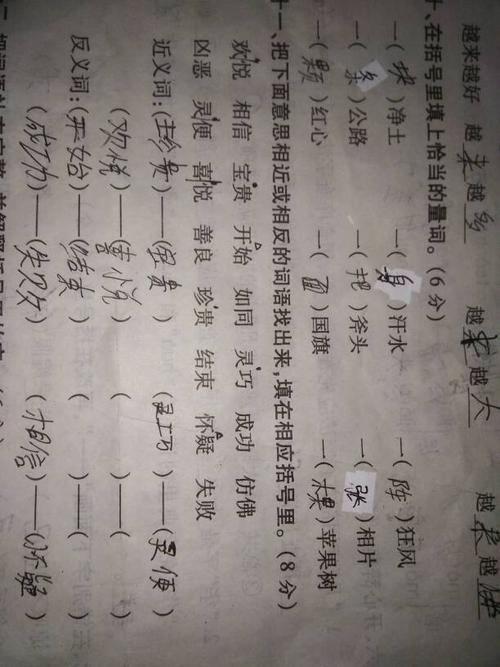 越来越好 越来越多 越来越大 越长越
十、在括号里填上恰当的量词。(6分)
一(块)净土 一(身)汗水 一(阵)狂风
一(条)公路 一(把)斧头 一(张)相片
一(颗)红心 一(面)国旗 一(棵)苹果树
十一、把下面意思相近或相反的词语找出来,填在相应括号里。(8分)
欢悦 相信 宝贵 开始 如同 灵巧 成功 仿佛
凶恶 灵便 喜悦 善良 珍贵 结束 怀疑 失败
近义词:(珍贵)——(宝贵) (灵巧)——(灵便)
(欢悦)——(喜悦) ( )——( )
反义词:(开始)——(结束) ( )——( )
(成功)——(失败) (相信)——(怀疑)